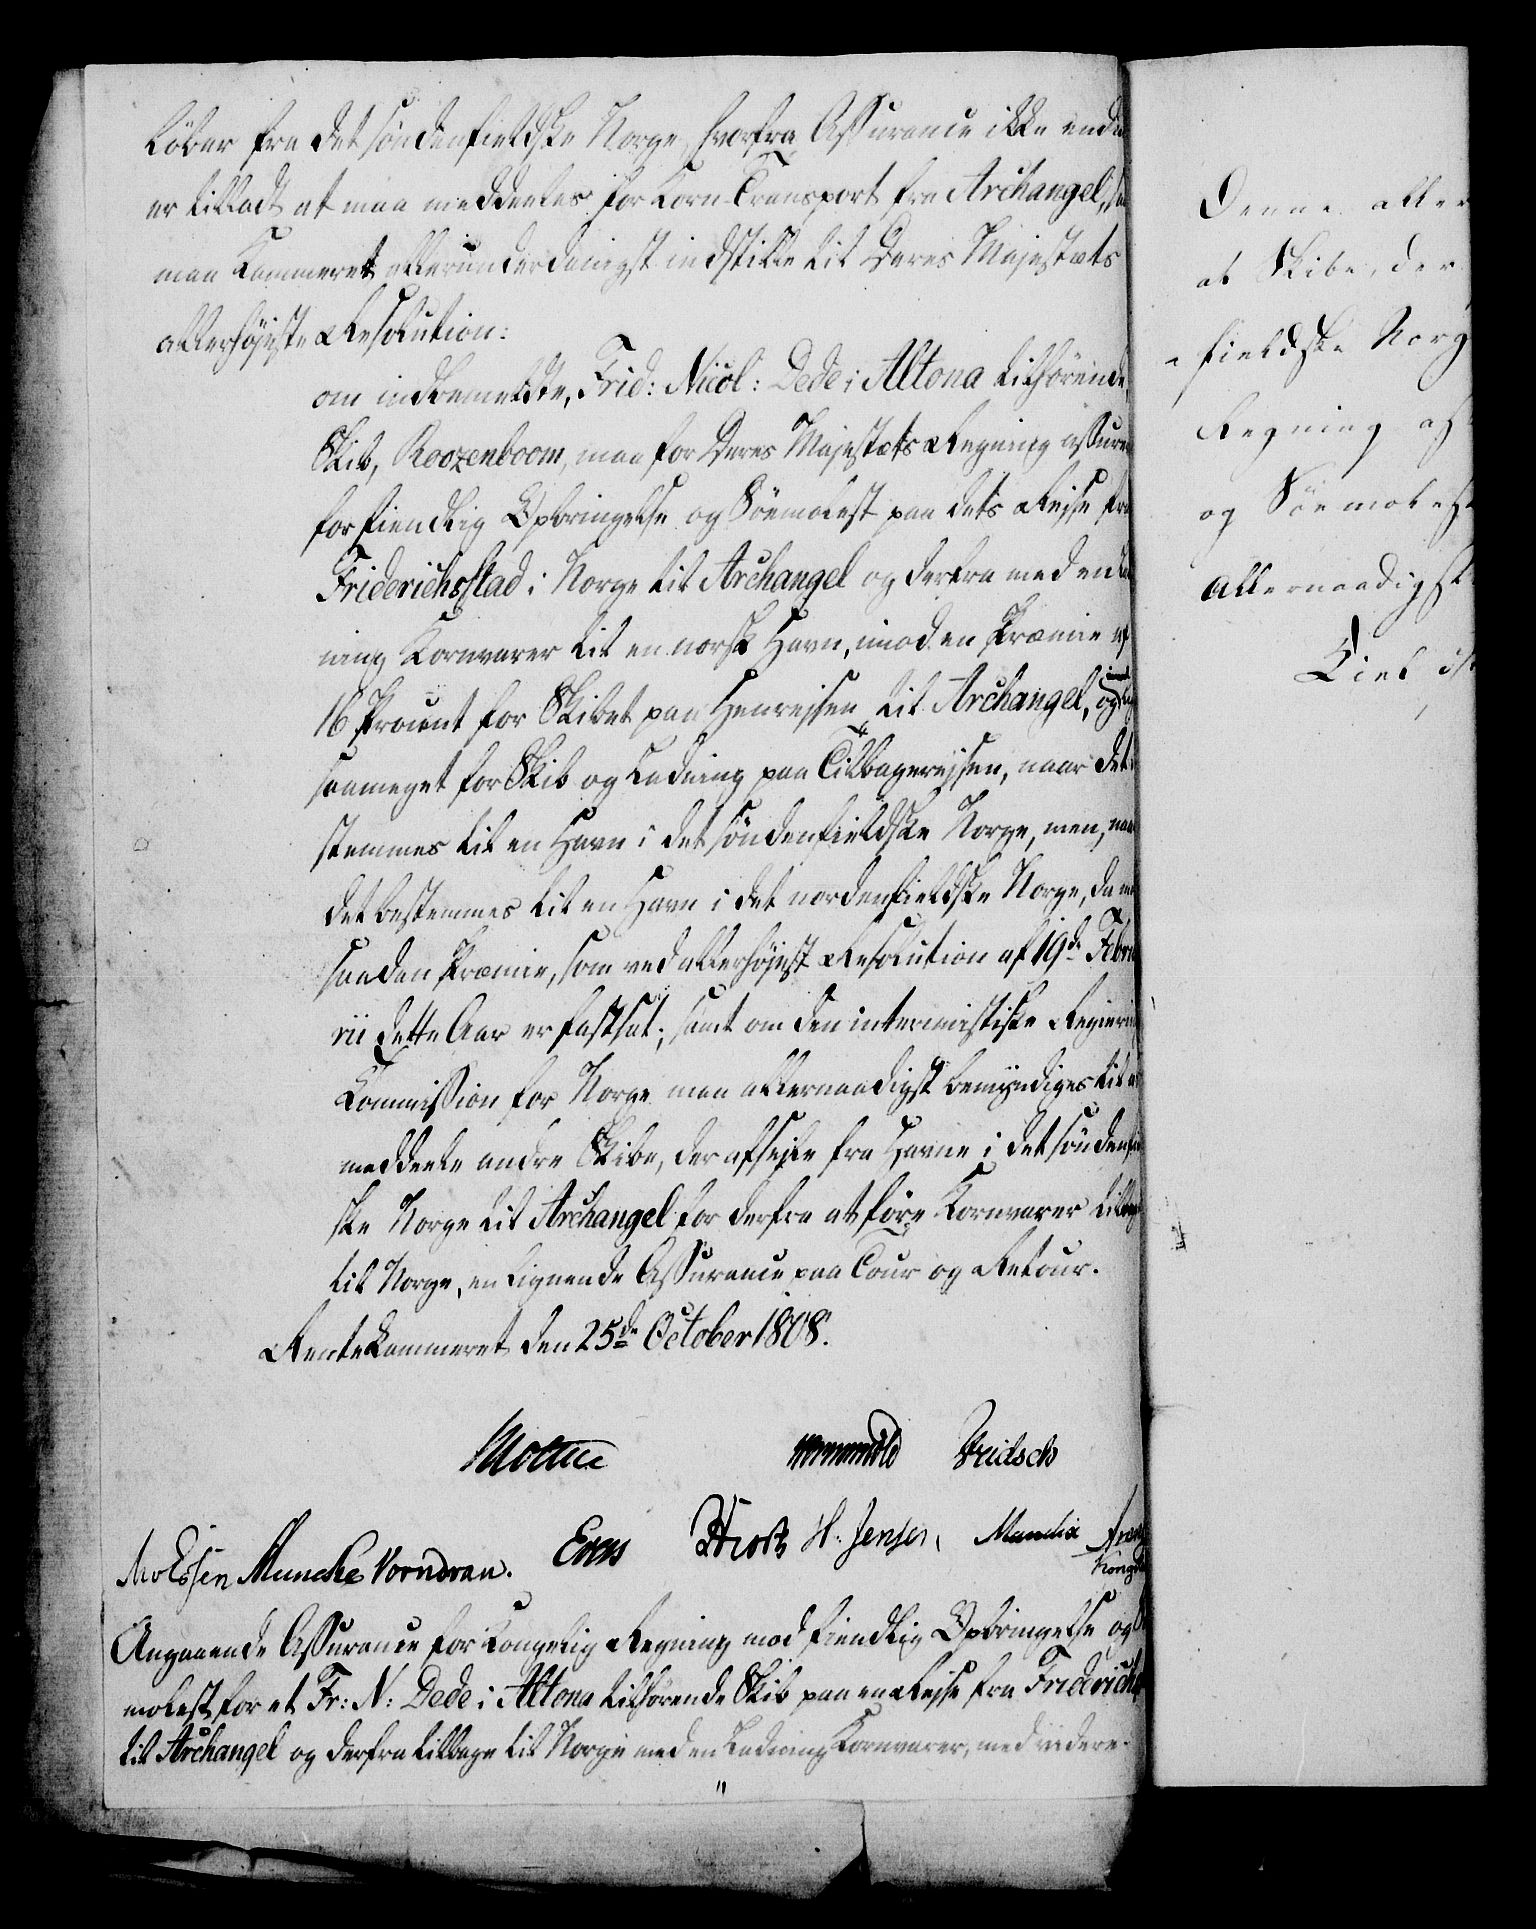 løber fra det søndenfieldske Norge, hvorfra Assurance ikke endnu
er tilladt at maa meddeeles for Korn-Transport fra Archangel,
maa Kammeret allerunderdanigst indstille til Deres Majestæts
allerhøjeste Resolution:
om indbemeldte, Frid: Nicol: Dede i Altona tilhørende,
Skib, Roozenboom, maa for Deres Majestæts Regning assure
for fiendlig Opbringelse og Søemolest paa dets Rejse fra
Friderichsstad i Norge til Archangel og derfra med en Lad
ning Kornvarer til en norsk Havn, imod en Præmie af
16 Procent for Skibet paa Henrejsen til Archangel, og lige
saameget for Skib og Ladning paa Tilbagerejsen, naar det
stemmes til en Havn i det søndenfieldske Norge, men, naar
det bestemmes til en Havn i det nordenfieldske Norge, da
saaden Præmie, som ved allerhøjest Resolution af 19de Febru
rii dette Aar er fastsat; samt om den intermistiske Regierings
Commission for Norge maa allernaadigst bemyndiges til at
meddeele andre Skibe, der afsejle fra Havne i det søndenfi
ske Norge til Archangel for derfra at føre Kornvarer tilbage
til Norge, en lignende Assurance paa Tour og Retour.
Rentekammeret den 25de October 1808.
Moltke Wormskiold Knudsen
Evers Hiort H. Jensen, Manthe
Munche Vorndran.
Angaaende Assurance for Kongelig Regning mod fiendlig Opbringelse og
molest for et Fr: N: Dede i Altona tilhørende Skib paa en Rejse fra Friderichs
til Archangel og derfra tilbage til Norge med en Ladning Kornvarer, med videre.
"
Denne aller
at Skibe, der
fieldske Norg
Regning as
og Søemolest
Allernaadigst
Kiel